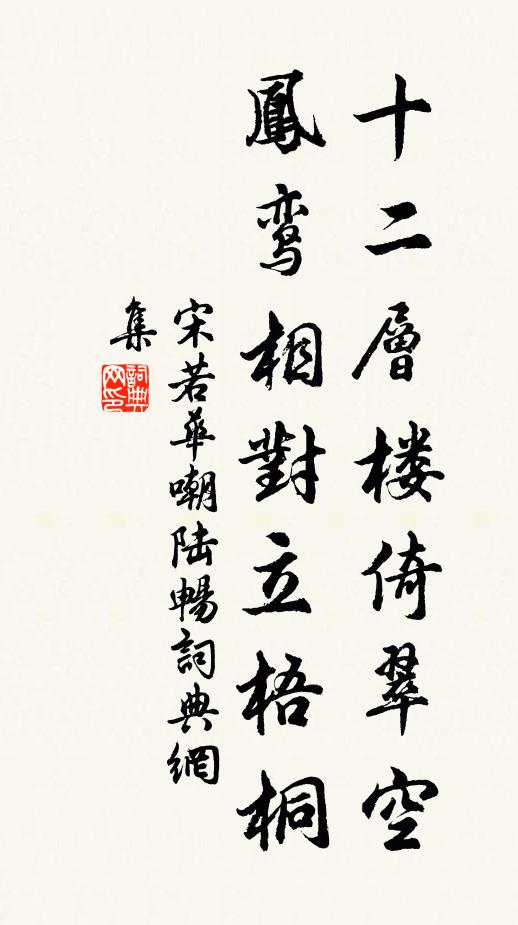 十二層楼倚翠空
鳳鸾相對立梧桐
宋若華嘲陆暢詞典網
集
詞典
网印